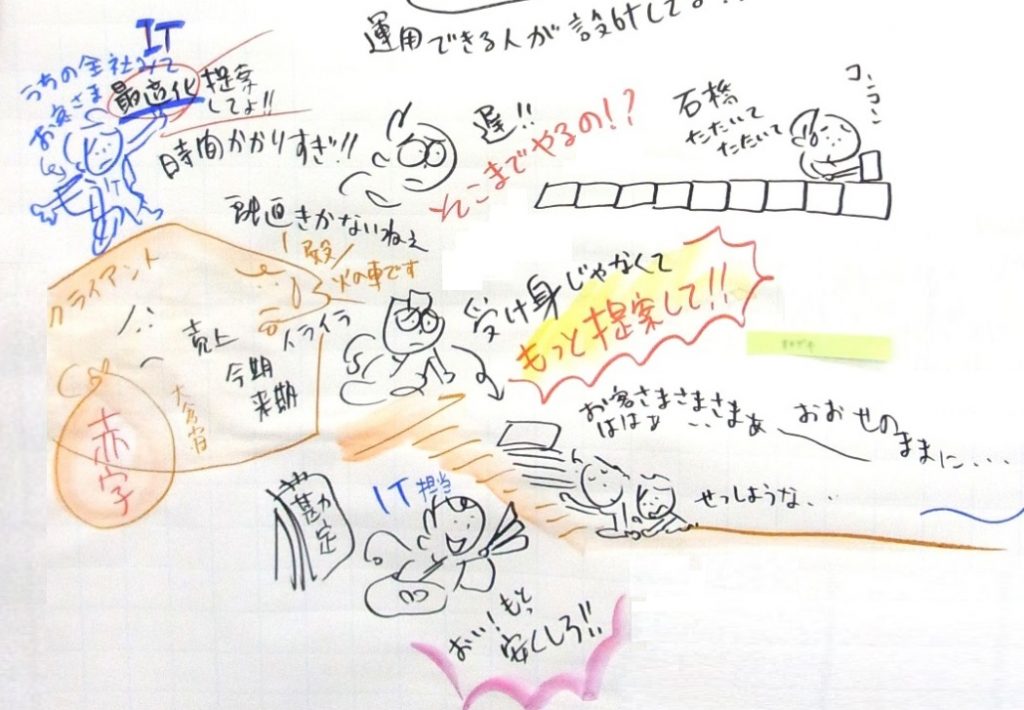 運用できる人が設計してる
IT
うちの会社みて
お客さま
最適化
提案
してよ!!
IT
時間かかりすぎ!!
遅!!
そこまでやるの!?
石橋
たたいて
たたいて
コンコン
融通きかないねぇ
殿
火の車です
クライアント
イライラ
売上
今期
来期
大金宵
赤字
受け身じゃなくて
もっと提案して!!
お客さまさまさまぁ
ははぁ
おおせの
ままに・・・
せっしょうな・・
勘定
IT担当
おい!もっと
安くしろ!!